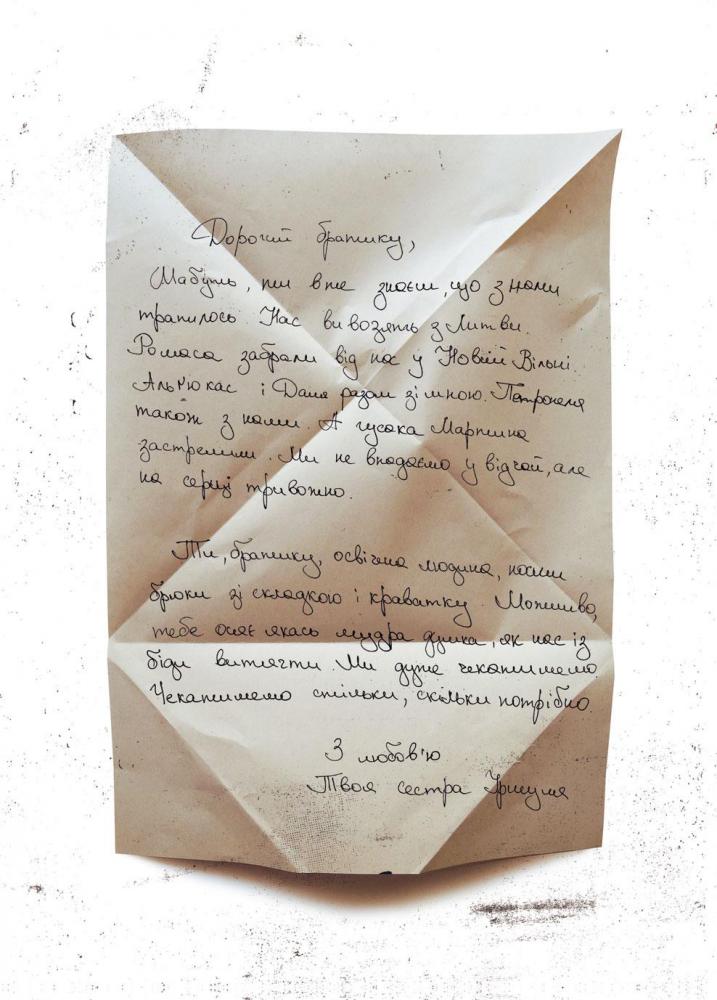 Дорогий братику,
Мабуть, ти вже знаєш, що з нами
трапилось. Нас вивозять з Литви.
Ромаса забрали від нас у Новій Вільні.
Альгюкас і Даля разом зі мною. Петронеля
також з нами. А гусака Мартина
застрелили. Ми не впадаємо у відчай, але
на серці тривожно.
Ти, братику, освічена людина, носиш
брюки зі складкою і краватку. Можливо,
тебе осяє якась мудра думка, як нас із
біди витягти. Ми дуже чекатимемо.
Чекатимемо стільки, скільки потрібно.
З любов'ю
Твоя сестра Уршуля